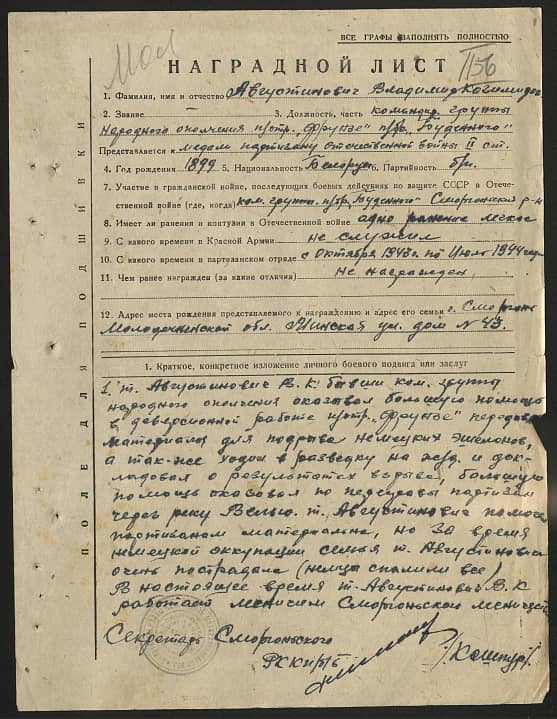 ВСЕ ГРАФЫ ЗАПОЛНЯТЬ ПОЛНОСТЬЮ
НАГРАДНОЙ ЛИСТ
1. Фамилия, имя и отчество Августинович Владимир
2. Звание 3. Должность, часть команд. группы
Народного ополчения п/отр. „Фрунзе" п/бр. „Буденного"
Представляется к медали партизану отечественной войны II ст.
4. Год рождения 1899 5. Национальность Белорус 6. Партийность б/п.
7. Участие в гражданской войне, последующих боевых действиях по защите СССР в Отече-
ственной войне (где, когда) ком. группы п/бр. „Буденного" Сморгонский р-н
8. Имеет ли ранения и контузии в Отечественной войне одно ранение легкое
9. С какого времени в Красной Армии не служил
10. С какого времени в партизанском отряде с октября 1943 г. по Июль 1944 года
11. Чем ранее награжден (за какие отличия) не награжден
12. Адрес места рождения представляемого к награждению и адрес его семьи г. Сморгонь
Молодечненской обл. Минская ул. дом № 43.
1. Краткое, конкретное изложение личного боевого подвига или заслуг
1. т. Августинович В. К. бывши ком. группы
народного ополчения оказывал большую помощь
в диверсионной работе п/отр. „Фрунзе" передавал
материалы для подрыва немецких эшелонов,
а так-же ходил в разведку на ж.д. и док-
ладовал о результатах взрыва, большую
помощь оказовал по переправы партизан
через реку Велью. т. Августинович помогал
партизанам материально, но за время
немецкой оккупации семья т. Августиновича
очень пострадала (немцы спалили все)
В настоящее время т. Августинович В. К
работает лесничим Сморгоньского лесничест
Секретарь Сморгоньского
РК КП/б/Б
ПОЛЕ ДЛЯ ПОДШИВКИ